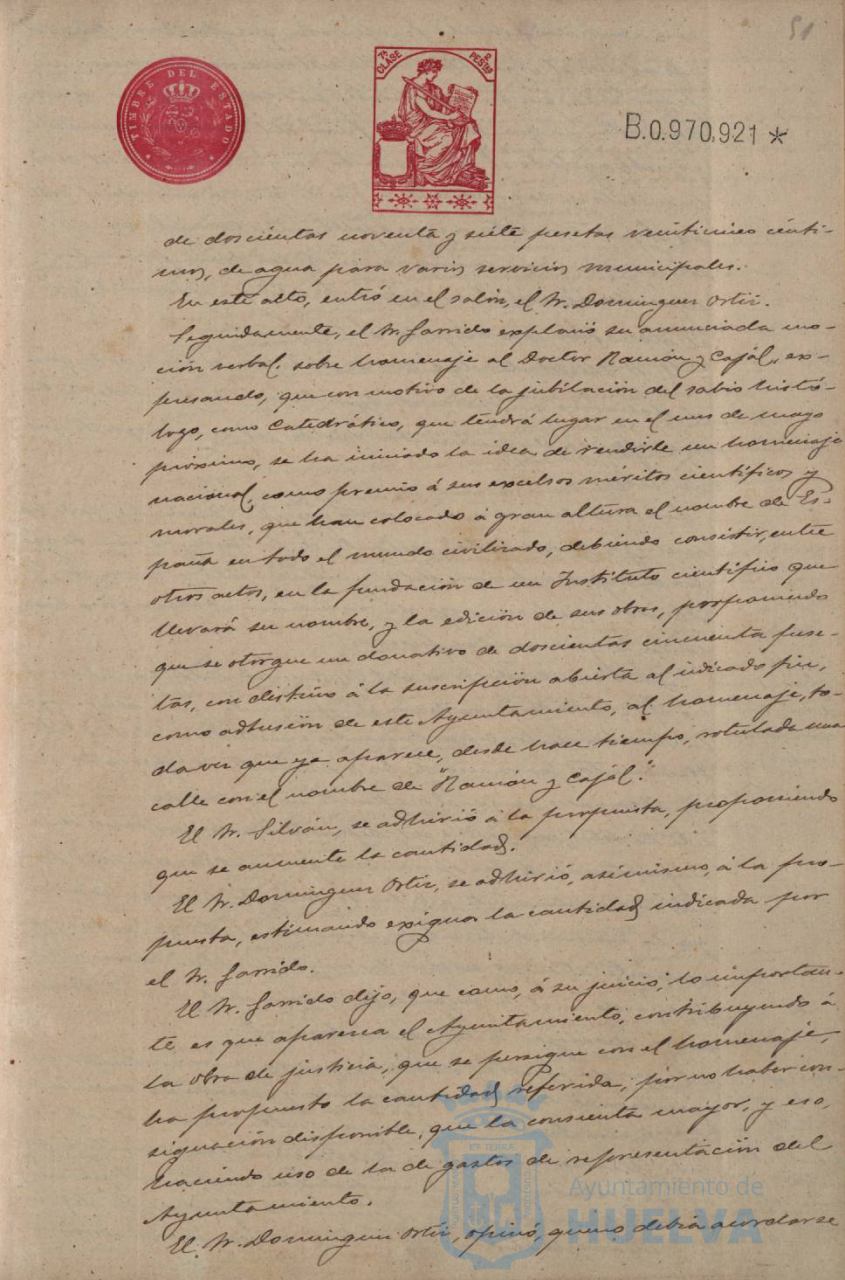 51
TIMBRE DEL ESTADO
7ª CLASE
2 PESTAS
B.0.970,921 *
de doscientas noventa y siete pesetas veinticinco cénti-
mos, de agua para varios servicios municipales.
En este alto, entró en el salón, el Sr. Dominguez Ortiz.
Seguidamente, el Sr. Garrido explanó su anunciada mo-
ción verbal, sobre homenaje al Doctor Ramón y Cajál, ex-
presando, que con motivo de la jubilación del sabio histó-
logo, como Catedrático, que tendrá lugar en el mes de mayo
próximo, se ha iniciado la idea de rendirle un homenaje
nacional, como premio á sus excelsos méritos científicos y
morales, que han colocado á gran altura el nombre de Es-
paña en todo el mundo civilizado, debiendo consistir, entre
otros actos, en la fundación de un Instituto científico que
llevará su nombre, y la edición de sus obras, proponiendo
que se otorgue un donativo de doscientas cincuenta pese-
tas, con destino á la suscripción abierta al indicado fin,
como adhesión de este Ayuntamiento, al homenaje, to-
da vez que ya aparece, desde hace tiempo, rotulada una
calle con el nombre de "Ramón y Cajál".
El Sr. Silván, se adhirió á la propuesta, proponiendo
que se aumente la cantidad.
El Sr. Dominguez Ortiz, se adhirió, asimismo, á la pro-
puesta, estimando exigua la cantidad indicada por
el Sr. Garrido.
El Sr. Garrido dijo, que como, á su juicio, lo importan-
te es que aparezca el Ayuntamiento, contribuyendo á
la obra de justicia, que se persigue con el homenaje,
ha propuesto la cantidad referida, por no haber con-
signación disponible, que la consienta mayor, y eso,
haciendo uso de la de gastos de representación del
Ayuntamiento.
El Sr. Dominguez Ortiz, opinó, que no debía acordarse
Ayuntamiento de
HUELVA